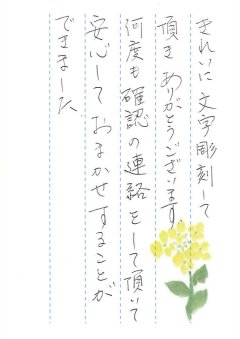 きれいに文字彫刻して
頂きありがとうございます。
何度も確認の連絡をして頂いて
安心しておまかせすることが
できました